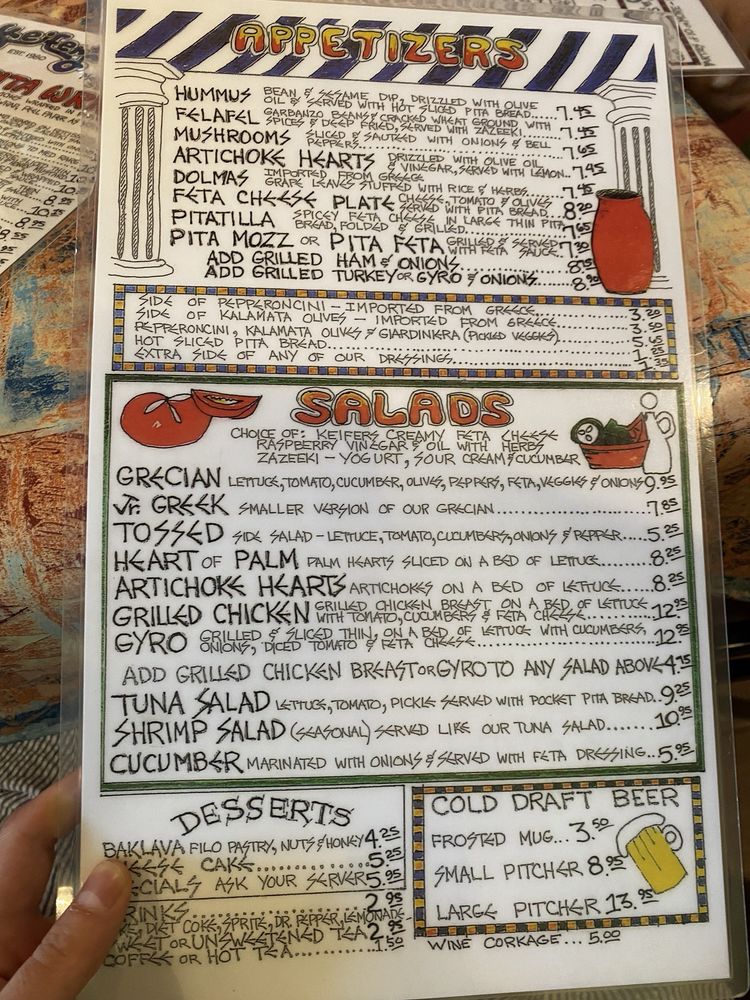 Keifer's
EST. 1980
PITA WR
APPETIZERS
HUMMUS BEAN & SESAME DIP, DRIZZLED WITH OLIVE
OIL & SERVED WITH HOT SLICED PITA BREAD.....7.45
FELAFEL GARBANZO BEANS & CRACKED WHEAT GROUND WITH
SPICES & DEEP FRIED, SERVED WITH ZAZEEKI......7.45
MUSHROOMS SLICED & SAUTEED WITH ONIONS & BELL
PEPPERS......7.65
ARTICHOKE HEARTS DRIZZLED WITH OLIVE OIL
& VINEGAR, SERVED WITH LEMON..7.45
DOLMAS IMPORTED FROM GREECE
GRAPE LEAVES STUFFED WITH RICE & HERBS.....7.45
FETA CHEESE PLATE CHEESE, TOMATO & OLIVES
SERVED WITH PITA BREAD....8.20
PITATILLA SPICEY FETA CHEESE IN LARGE THIN PITA
BREAD, FOLDED & GRILLED......7.65
PITA MOZZ OR PITA FETA GRILLED & SERVED
WITH FETA SAUCE..7.30
ADD GRILLED HAM & ONIONS......
ADD GRILLED TURKEY OR GYRO & ONIONS.....8.90
SIDE OF PEPPERONCINI - IMPORTED FROM GREECE......3.20
SIDE OF KALAMATA OLIVES - IMPORTED FROM GREECE......3.50
PEPPERONCINI, KALAMATA OLIVES & GIARDINERA (PICKLED VEGGIES)......5.65
HOT SLICED PITA BREAD......1.25
EXTRA SIDE OF ANY OF OUR DRESSINGS......
SALADS
CHOICE OF: KEIFERS CREAMY FETA CHEESE
RASPBERRY VINEGAR & OIL WITH HERBS
ZAZEEKI - YOGURT, SOUR CREAM & CUCUMBER
GRECIAN LETTUCE, TOMATO, CUCUMBER, OLIVES, PEPPERS, FETA, VEGGIES & ONIONS 9.95
Jr. GREEK SMALLER VERSION OF OUR GRECIAN......7.85
TOSSED SIDE SALAD - LETTUCE, TOMATO, CUCUMBERS, ONIONS & PEPPER....5.25
HEART OF PALM PALM HEARTS SLICED ON A BED OF LETTUCE......8.25
ARTICHOKE HEARTS ARTICHOKES ON A BED OF LETTUCE......8.25
GRILLED CHICKEN GRILLED CHICKEN BREAST ON A BED OF LETTUCE
WITH TOMATO, CUCUMBERS & FETA CHEESE......12.95
GYRO GRILLED & SLICED THIN, ON A BED OF LETTUCE WITH CUCUMBERS,
ONIONS, DICED TOMATO & FETA CHEESE......12.95
ADD GRILLED CHICKEN BREAST OR GYRO TO ANY SALAD ABOVE 4.75
TUNA SALAD LETTUCE, TOMATO, PICKLE SERVED WITH POCKET PITA BREAD..9.25
SHRIMP SALAD (SEASONAL) SERVED LIKE OUR TUNA SALAD......10.95
CUCUMBER MARINATED WITH ONIONS & SERVED WITH FETA DRESSING...5.95
DESSERTS
BAKLAVA FILO PASTRY, NUTS & HONEY 4.25
EESE CAKE......5.25
ECIALS ASK YOUR SERVER 5.95
RINKS......2.95
KE, DIET COKE, SPRITE, DR. PEPPER, LEMONADE
WEET OR UNSWEETENED TEA 2.95
COFFEE OR HOT TEA......1.50
COLD DRAFT BEER
FROSTED MUG...3.50
SMALL PITCHER 8.95
LARGE PITCHER 13.95
WINE CORKAGE... 5.00